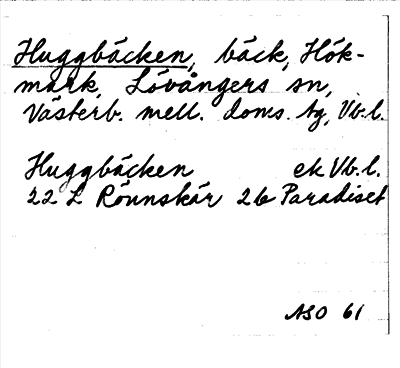 Huggbäcken, bäck, Hök-
mark, Lövångers sn,
Västerb. mell. doms. tg, Vb.l.
Huggbäcken ek Vb.l.
22 L Rönnskär 26 Paradiset
ASO 61